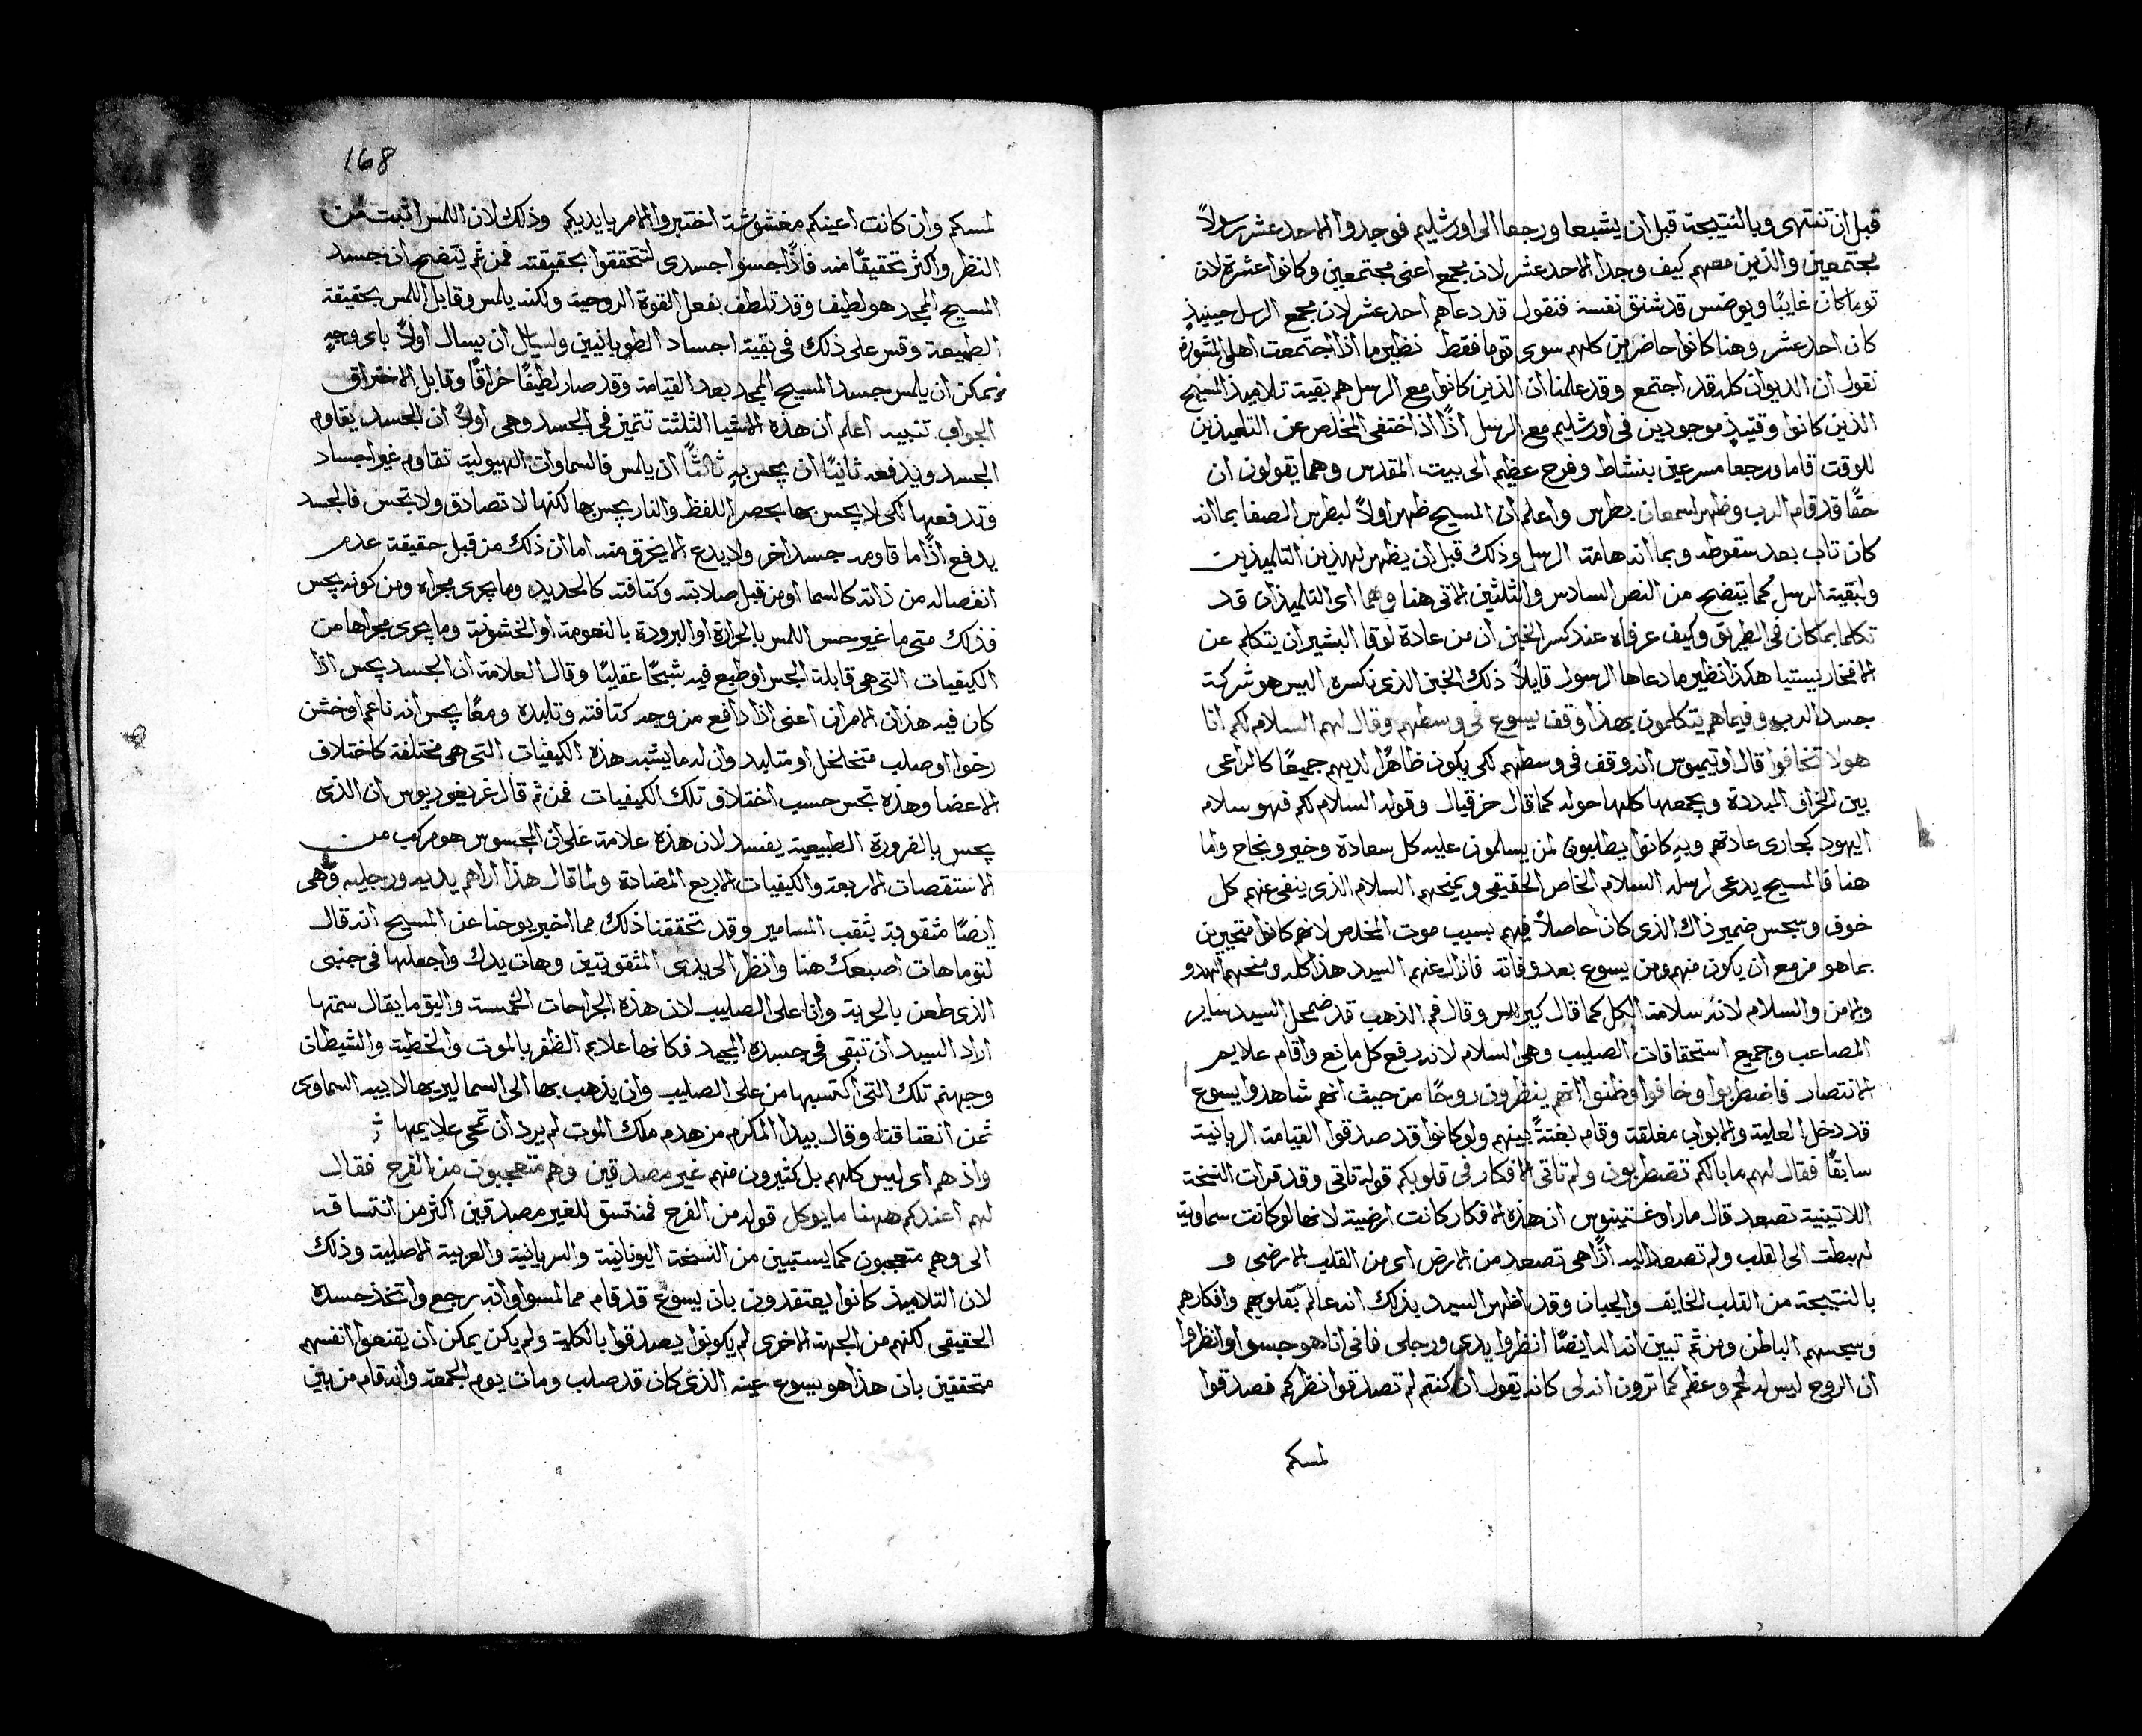 قبل ان تنتهى وبالنتيجة قبل ان يشبعا ورجعا الى اورشليم فوجدوا الاحد عشر رسولاً
مجتمعين والذين معهم كيف وجدا الاحد عشر لان مجمع اعنى مجتمعين وكانوا عشرة لان
توما كان غايبًا ويوضس قد شنق نفسه فنقول قد دعاهم احد عشر لان مجمع الرسل حينيذٍ
كان احد عشر وهنا كانوا حاضرين كلهم سوى توما فقط نظير ما اذا اجتمعت اهل المشورة
نقول ان الديوان كله قد اجتمع وقد علمنا ان الذين كانوا مع الرسل هم بقية تلاميذ المسيح
الذين كانوا وقتيذٍ موجودين فى اورشليم مع الرسل اذًا اذ اختفى المخلص عن التلميذين
للوقت قاما ورجعا مسرعين بنشاط وفرح عظيم الى بيت المقدس وهما يقولون ان
حقًا قد قام الرب وظهر لسمعان بطرس واعلم ان المسيح ظهر اولاً لبطرس الصفا بما انه
كان تاب بعد سقوطه وبما انه هامة الرسل وذلك قبل ان يظهر لهذين التلميذين
ولبقية الرسل كما يتضح من النص السادس والثلثين الاتى هنا وهما اى التلميذان قد
تكلما بما كان فى الطريق وكيف عرفاه عند كسر الخبز ان من عادة لوقا البشير ان يتكلم عن
الافخاريستيا هكذا نظير ما دعاها الرسول قايلاً ذلك الخبز الذى نكسره اليس هو شركة
جسد الرب وفيما هم يتكلمون بهذا وقف يسوع فى وسطهم وقال لهم السلام لكم انا
هو لا تخافوا قال اوتيميوس انه وقف فى وسطهم لكى يكون ظاهرًا لديهم جميعًا كالراعى
بين الخراف المبددة ويجمعها كلها حوله كما قال حزقيال وقوله السلام لكم فهو سلام
اليهود كجارى عادتهم وبه كانوا يطلبون لمن يسلمون عليه كل سعادة وخير ونجاح واما
هنا فالمسيح يدعى لرسله السلام الخاص الحقيقى ويمنحهم السلام الذى ينفى عنهم كل
خوف وسجس ضمير ذاك الذى كان حاصلاً فيهم بسبب موت المخلص لانهم كانوا متحيرين
بما هو مزمع ان يكون منهم ومن يسوع بعد وفاته فازال عنهم السيد هذا كله ومنحهم الهدو
والامن والسلام لانه سلامة الكل كما قال كيرللس وقال فم الذهب قد ضمحل السيد ساير
المصاعب وجميع استحقاقات الصليب وهى السلام لانه رفع كل مانع واقام علايم
الانتصار فاضطربوا وخافوا وظنوا انهم ينظرون روحًا من حيث انهم شاهدوا يسوع
قد دخل العلية والابواب مغلقة وقام بغتةً بينهم ولو كانوا قد صدقوا القيامة الربانية
سابقًا فقال لهم ما بالكم تضطربون ولم تاتى الافكار فى قلوبكم قوله تاتى وقد قرات النسخة
اللاتينية تصعد قال مار اوغستينوس ان هذه الافكار كانت ارضية لانها لو كانت سماوية
لهبطت الى القلب ولم تصعد اليه اذًا هى تصعد من الارض اى من القلب الارضى و
بالنتيجة من القلب الخايف والجبان وقد اظهر السيد بذلك انه عالم بقلوبهم وافكارهم
وسجسهم الباطن ومن ثم تبين انه اله ايضًا انظروا يدى ورجلى فانى انا هو جسوا وانظروا
ان الروح ليس له لحم وعظم كما ترون انه لى كانه يقول ان كنتم لم تصدقوا نظركم فصدقوا
لمسكم
168
لمسكم وان كانت اعينكم مغشوشة اختبروا الامر بايديكم وذلك لان اللمس اثبت من
النظر واكثر تحقيقًا منه فاذًا جسوا جسدى لتتحققوا بحقيقته فمن ثم يتضح ان جسد
المسيح الممجد هو لطيف وقد تلطف بفعل القوة الروحية ولكنه يلمس وقابل اللمس بحقيقة
الطبيعة وقس على ذلك فى بقية اجساد الطوبانيين ولسايل ان يسال اولاً باى وجهٍ
يمكن ان يلمس جسد المسيح الممجد بعد القيامة وقد صار لطيفًا خراقًا وقابل الاختراق
الجواب تنبيه اعلم ان هذه الاشيا الثلثة تتميز فى الجسد وهى اولاً ان الجسد يقاوم
الجسد ويدفعه ثانيًا ان يحس به ثالثًا ان يلمس فالسماوات الهيولية تقاوم غير اجساد
وتدفعها لكى لا يحس بها بحصر اللفظ والنار يحس بها لكنها لا تصادق ولا تجس فالجسد
يدفع اذًا ما قاومه جسد اخر ولا يدع ان يخرق منه اما ان ذلك من قبل حقيقة عدم
انفصاله من ذاته كالسما او من قبل صلابته وكثافته كالحديد وما يجرى مجراه ومن كونه يحس
فذلك متى ما غير حس اللمس بالحرارة او البرودة بالنعومة او الخشونة وما يجرى مجراها من
الكيفيات التى هى قابلة الجس او طبع فيه شبحًا عقليًا وقال العلامة ان الجسد يجس اذا
كان فيه هذان الامران اعنى اذا دافع من وجه كثافته وتلبده ومعًا يحس انه ناعم او خشن
رخوًا او صلب متخلخل او متلبد وان له ما يشبه هذه الكيفيات التى هى مختلفة كاختلاف
الاعضا وهذه تجس حسب اختلاف تلك الكيفيات فمن ثم قال غريغوريوس ان الذى
يجس بالضرورة الطبيعية يفسد لان هذه علامة على ان المجسوس هو مركب من
الاستقصات الاربعة والكيفيات الاربع المضادة ولما قال هذا اراهم يديه ورجليه وهى
ايضًا مثقوبة بثقب المسامير وقد تحققنا ذلك مما اخبر يوحنا عن المسيح انه قال
لتوما هات اصبعك هنا وانظر الى يدى المثقوبتين وهات يدك واجعلها فى جنبى
الذى طعن بالحربة وانا على الصليب لان هذه الجراحات الخمسة واليق ما يقال سمتها
اراد السيد ان تبقى فى جسده المجيد فكانها علايم الظفر بالموت والخطية والشيطان
وجهنم تلك التى اكتسبها من على الصليب وان يذهب بها الى السما ليريها لابيه السماوى
ثمن انعتاقنا وقال بيدا المكرم من هدم ملك الموت لم يرد ان تمحى علايمها
واذ هم اى ليس كلهم بل كثيرون منهم غير مصدقين وهم متعجبون من الفرح فقال
لهم اعندكم ههنا ما يوكل قوله من الفرح فمنتسق للغير مصدقين اكثر من انتساقه
الى وهم متعجبون كما يستبين من النسخة اليونانية والسريانية والعربية الاصلية وذلك
لان التلاميذ كانوا يعتقدون بان يسوع قد قام مما لمسوا وانه رجع واتخذ جسده
الحقيقى لكنهم من الجهة الاخرى لم يكونوا يصدقوا بالكلية ولم يكن يمكن ان يقنعوا انفسهم
متحققين بان هذا هو يسوع عينه الذى كان قد صلب ومات يوم الجمعة وانه قام من بين